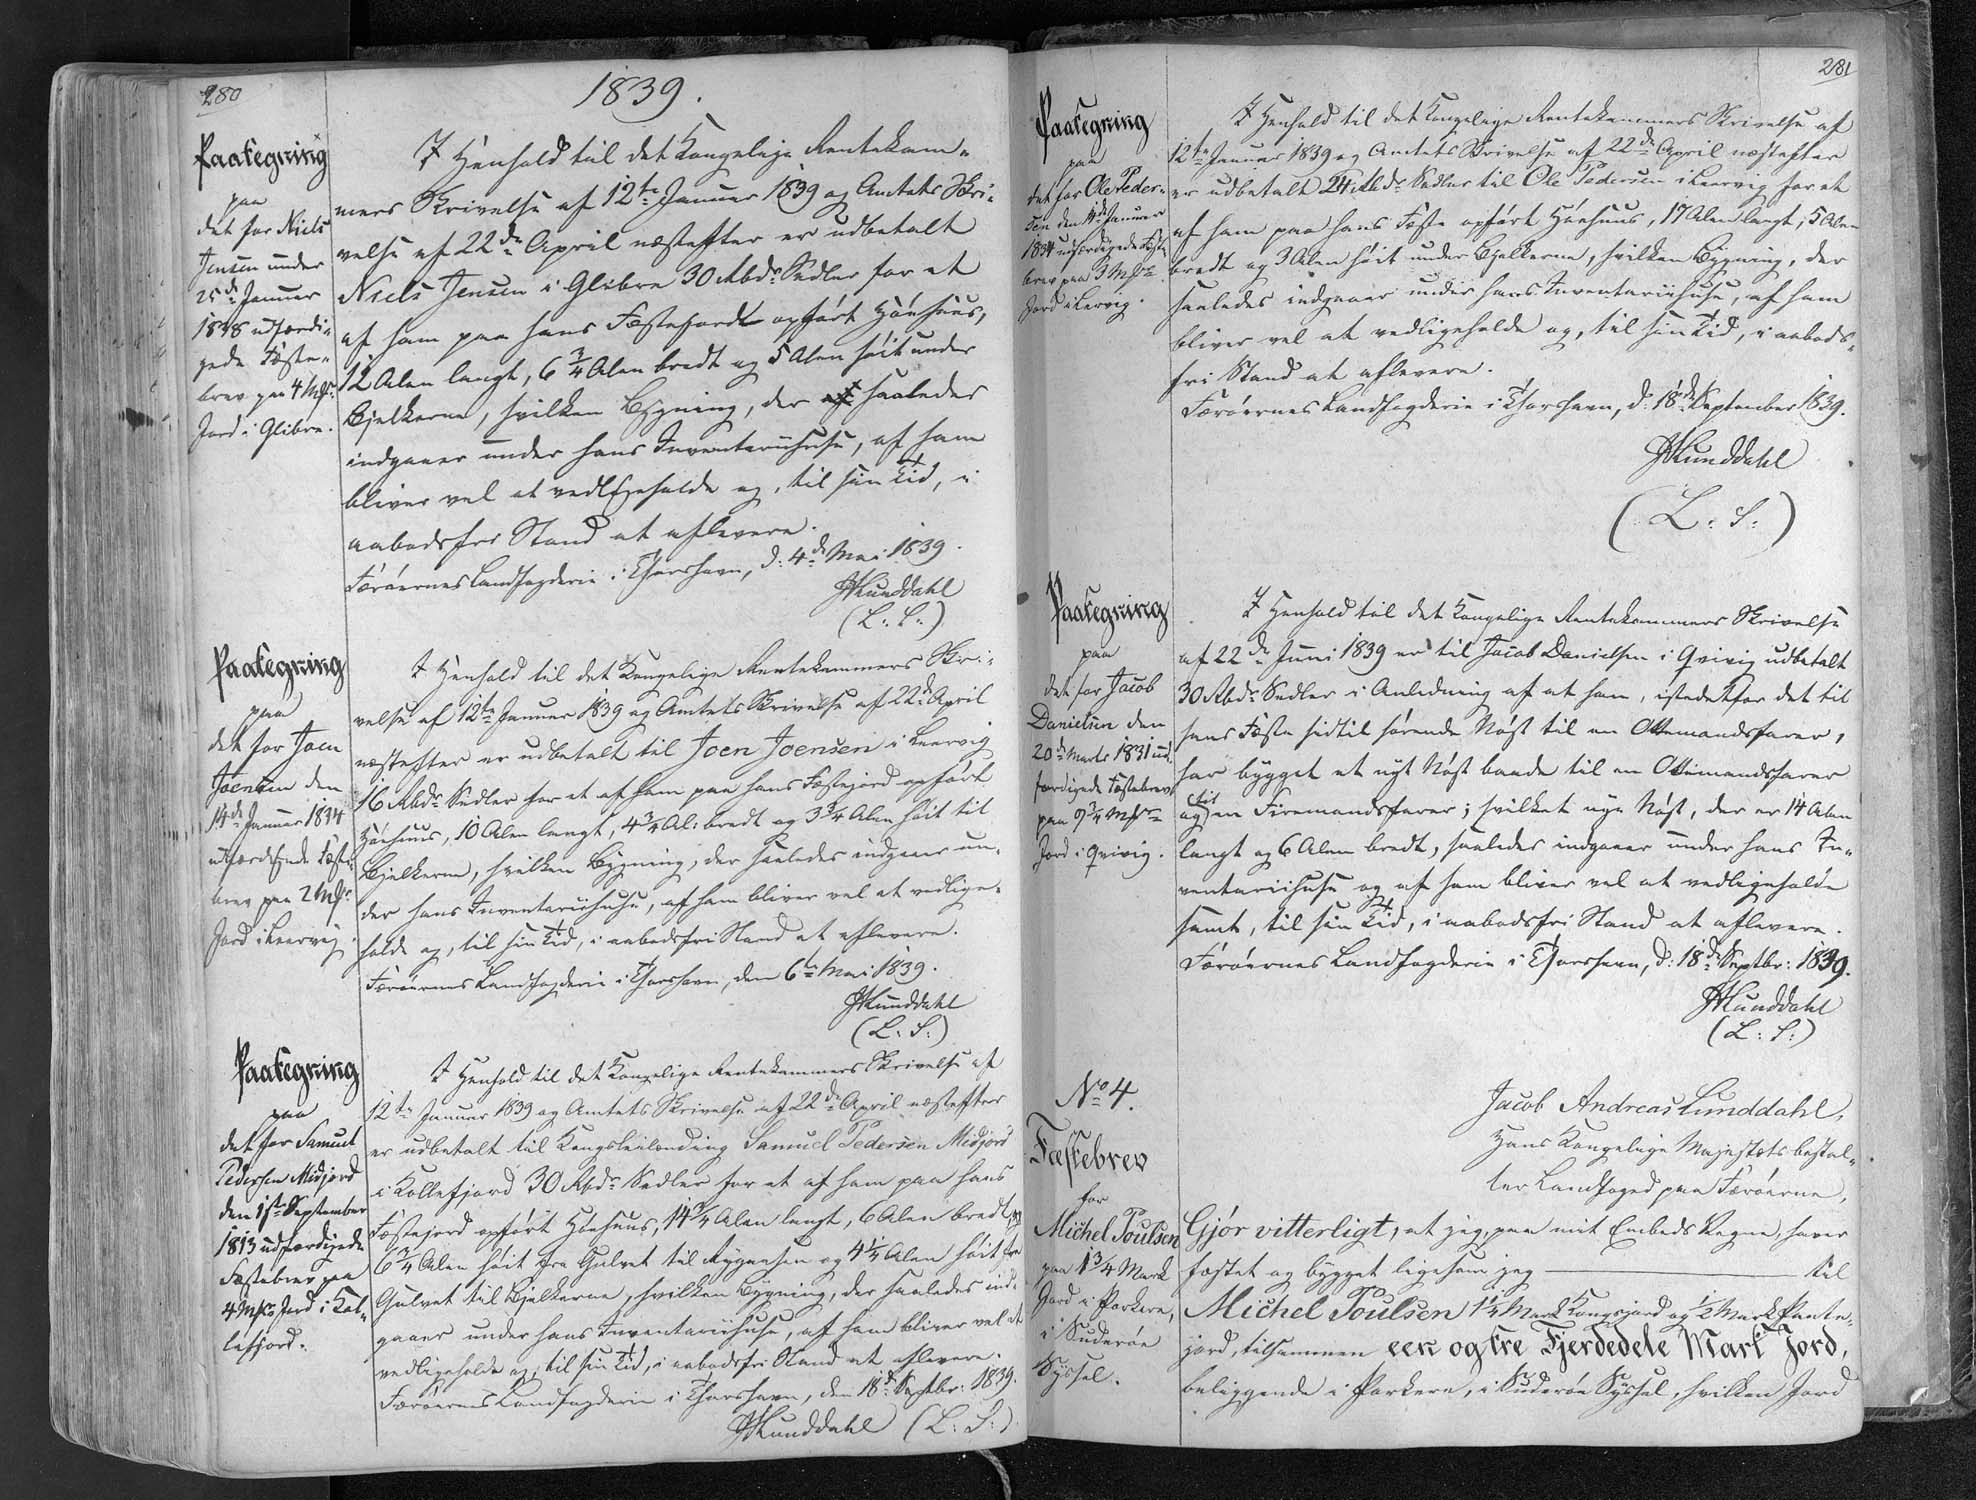 280
1839.
Paategning
paa
det for Niels
Jensen under
25de Januar
1838 udfærdi-
gede Fæste-
brev paa 4 Mk.
Jord i Glibre.
I Henhold til det Kongelige Rentekam-
mers Skrivelse af 12te Januar 1839 og Amtets Skri-
velse af 22de April næstefter er udbetalt
Niels Jensen i Glibre 30 Rbdr. Sedler for et
af ham paa hans Fæstejord opført Hóehuus,
12 Alen langt, 6 3/4 Alen bredt og 5 Alen höit under
Bjelkerne, hvilken Bygning, der saaledes
indgaaer under hans Inventariihuse, af ham
bliver vel at vedligeholde og, til sin Tid, i
aabodsfri Stand at aflevere.
Færöernes Landfogderie i Thorshavn, d: 4de Mai 1839.
JALunddahl
(L. S.)
Paategning
paa
det for Joen
Joensen den
14de Januar 1834
udfærdigede Fæste-
brev paa 2 Mk.
Jord i Leervig.
I Henhold til det Kongelige Rentekammers Skri-
velse af 12te Januar 1839 og Amtets Skrivelse af 22de April
næstefter er udbetalt til Joen Joensen i Leervig
16 Rbdr. Sedler for et af ham paa hans Fæstejord opført
Hóehuus, 10 Alen langt, 4 3/4 Al: bredt og 3 3/4 Alen höit til
Bjelkerne, hvilken Bygning, der saaledes indgaaer un-
der hans Inventariihuse, af ham bliver vel at vedlige-
holde og, til sin Tid, i aabodsfri Stand at aflevere.
Færöernes Landfogderie i Thorshavn, den 6te Mai 1839.
JALunddahl
(L. S.)
Paategning
paa
det for Samuel
Pedersen Midjord
den 1ste September
1813 udfærdigede
Fæstebrev paa
4 Mks Jord i Kol-
lefjord.
I Henhold til det Kongelige Rentekammers Skrivelse af
12te Januar 1839 og Amtets Skrivelse af 22de April næstefter
er udbetalt til Kongsleilending Samuel Pedersen Midjord
i Kollefjord 30 Rbdr. Sedler for et af ham paa hans
Fæstejord opført Hóehuus, 14 3/4 Alen langt, 6 Alen bredt og
6 3/4 Alen höit fra Gulvet til Rygaasen og 4 1/4 Alen höit fra
Gulvet til Bjelkerne, hvilken Bygning, der saaledes ind-
gaaer under hans Inventariihuse, af ham bliver vel at
vedligeholde og, til sin Tid, i aabodsfri Stand at aflevere.
Færöernes Landfogderie i Thorshavn, den 18de Septbr: 1839.
JALunddahl (L. S.)
281
Paategning
paa
det for Ole Peder-
sen den 14de Januar
1834 udfærdigede Fæste-
brev paa 3 Mks
Jord i Lervig.
I Henhold til det Kongelige Rentekammers Skrivelse af
12te Januar 1839 og Amtets Skrivelse af 22de April næstefter
er udbetalt 24 Rbdr. Sedler til Ole Pedersen i Leervig for et
af ham paa hans Fæste opført Hóehuus, 17 Alen langt, 5 Alen
bredt og 3 Alen höit under Bjelkerne, hvilken Bygning, der
saaledes indgaaer under hans Inventariihuse, af ham
bliver vel at vedligeholde og, til sin Tid, i aabods-
fri Stand at aflevere.
Færöernes Landfogderie i Thorshavn, d: 18de September 1839.
JALunddahl
(L. S.)
Paategning
paa
det for Jacob
Danielsen den
20de Marts 1831 ud-
færdigede Fæstebrev
paa 9 3/4 Mks
Jord i Qvivig.
I Henhold til det Kongelige Rentekammers Skrivelse
af 22de Juni 1839 er til Jacob Danielsen i Qvivig udbetalt
30 Rbdr. Sedler i Anledning af at han, istedetfor det til
hans Fæste hidtil hørende Nöst til en Ottemandsfarer,
har bygget et nyt Nöst baade til en Ottemandsfarer
og til en Firemandsfarer; hvilket nye Nöst, der er 14 Alen
langt og 6 Alen bredt, saaledes indgaaer under hans In-
ventariihuse og af ham bliver vel at vedligeholde
samt, til sin Tid, i aabodsfri Stand at aflevere.
Færöernes Landfogderie i Thorshavn, d: 18de Septbr: 1839.
JALunddahl
(L. S.)
No 4.
Fæstebrev
for
Michel Poulsen
paa 1 3/4 Mark
Jord i Porkere,
i Suderöe
Syssel.
Jacob Andreas Lunddahl,
Hans Kongelige Majestæts bestal-
ter Landfoged paa Færöerne,
Gjör vitterligt, at jeg, paa mit Embeds Vegne, haver
fæstet og bygget ligesom jeg til
Michel Poulsen 1 1/4 Mark Kongsjord og 1/2 Mark Pante-
jord, tilsammen een og tre Fjerdedele Mark Jord,
beliggende i Porkere, i Suderöe Syssel, hvilken Jord